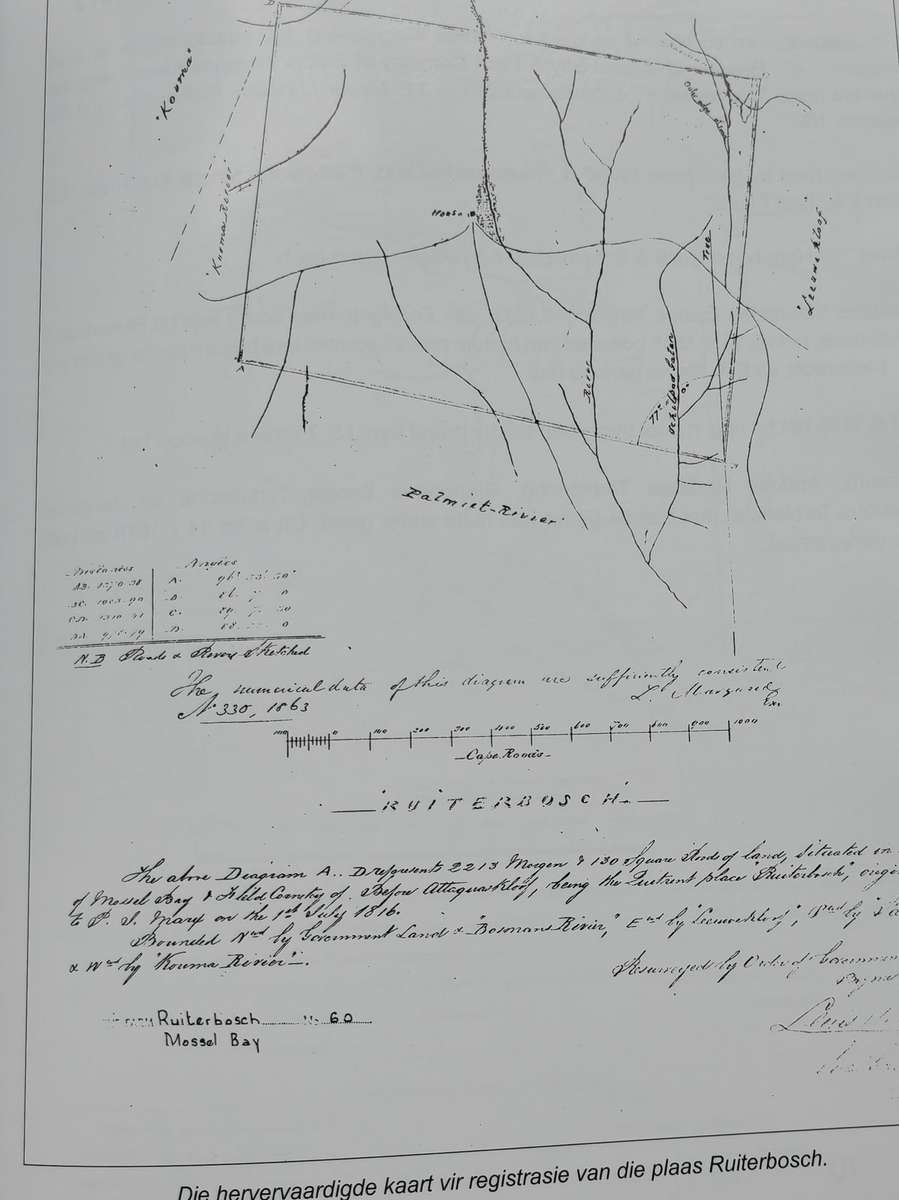 D
"Kouma"
"Kouma Rivier
House
"Leeuwe kloof
Tree
River
Schilpad Eiland
A
Palmiet-Rivier
Distances Angles
AB. A.
BC. B.
CD. C.
DA. D.
N.B Roads & Rivers Sketched
The numerical data of this diagram are sufficiently consistent
L. Marquard
Exr
No 330, 1863
100 0 100 200 300 400 500 600 700 800 900 1000
Cape Roods
RUITERBOSCH.
The above Diagram A..D represents 2213 Morgen & 130 Square Roods of land, situated in
of Mossel Bay & Field Cornetcy of Before Attaquaskloof, being the Quitrent place "Ruiterbosch",
to P. J. Marx on the 1st July 1816.
Bounded Nwd by Government Land & "Bosmans Rivier," Ewd by "Leeuwekloof", Swd by
& Wwd by "Kouma Rivier".
Resurveyed by Order of Governmen
Louis
Ruiterbosch No 60
Mossel Bay
Die hervervaardigde kaart vir registrasie van die plaas Ruiterbosch.